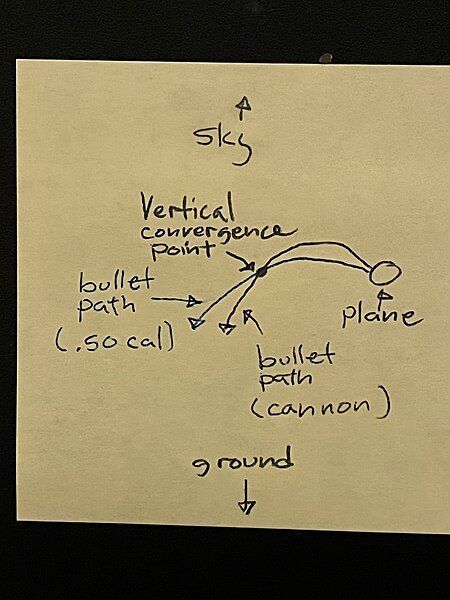 sky
Vertical
convergence
point
bullet
path
(.50 cal)
plane
bullet
path
(cannon)
ground